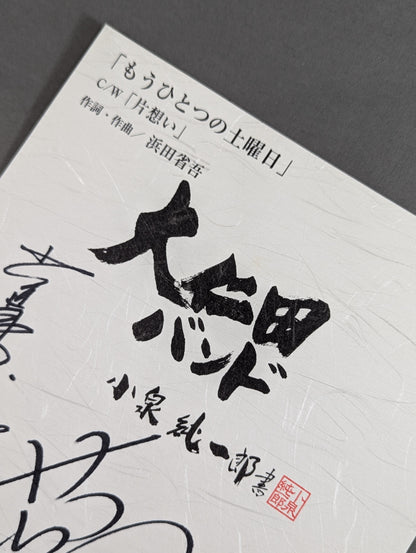 「もうひとつの土曜日」
C/W「片想い」
作詞・作曲／浜田省吾
大仁田
バンド
小泉純一郎書
小泉
純一郎